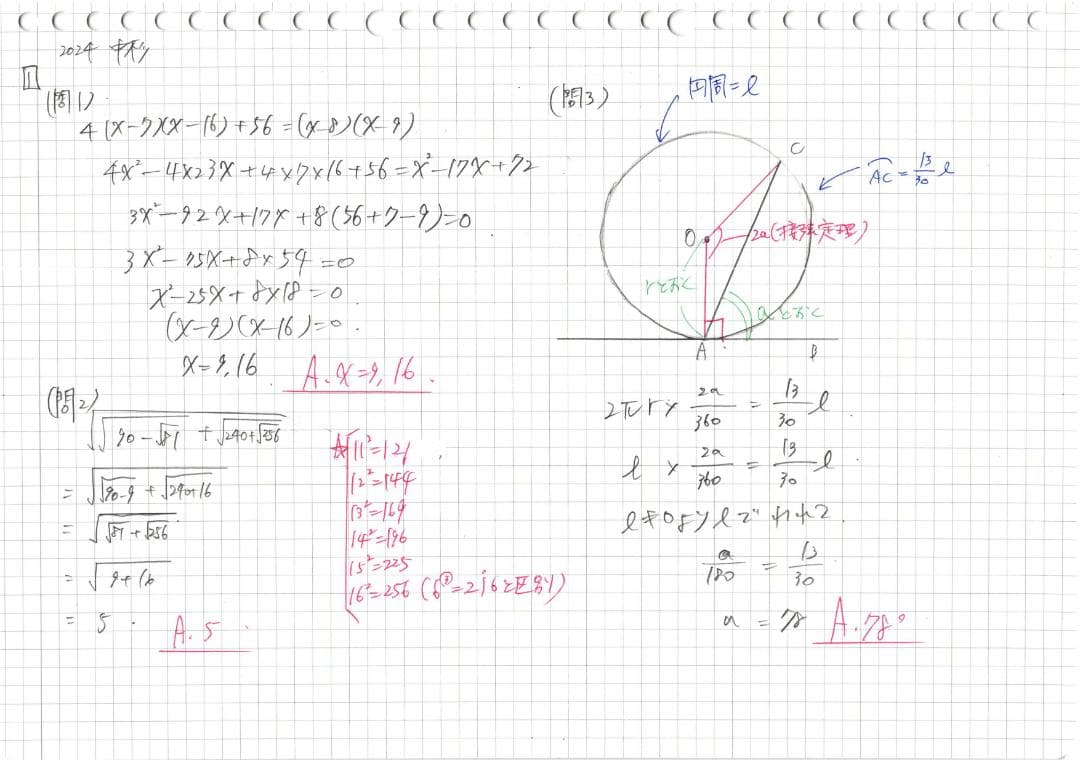 2024
1
(問1)
4(x-7)(x-16)+56=(x-8)(x-9)
4x²-4×23x+4×7×16+56=x²-17x+72
3x²-92x+17x+8(56+7-9)=0
3x²-75x+8×54=0
x²-25x+8×18=0
(x-9)(x-16)=0.
x=9,16
A. x=9,16.
(問2)
√(√(90-√81)+√(240+√256))
=√(√(90-9)+√(240+16))
=√(√81+√256)
=√(9+16)
=5.
A. 5.
☆ 11²=121
12²=144
13²=169
14²=196
15²=225
16²=256 (6³=216と区別)
(問3)
円周=ℓ
C
AC=13/30 ℓ
O
2a(接弦定理)
rとおく
aとおく
A
B
2πr×2a/360=13/30 ℓ
ℓ×2a/360=13/30 ℓ
ℓ≠0よりℓでわれて.
a/180=13/30
a=78
A. 78°